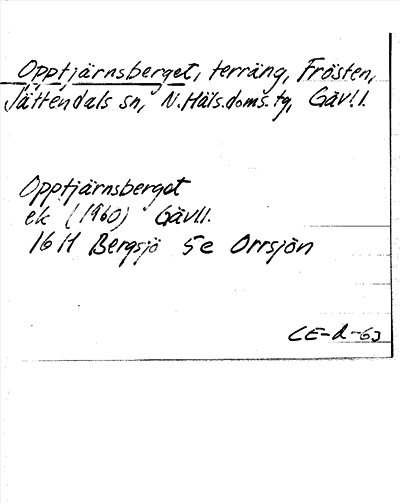 Opptjärnsberget, terräng, Frösten,
Jättendals sn, N.Häls.doms.tg, Gävl.l.
Opptjärnsberget
ek (1960) Gävll.
16 H Bergsjö 5e Orrsjön
CE-R-63